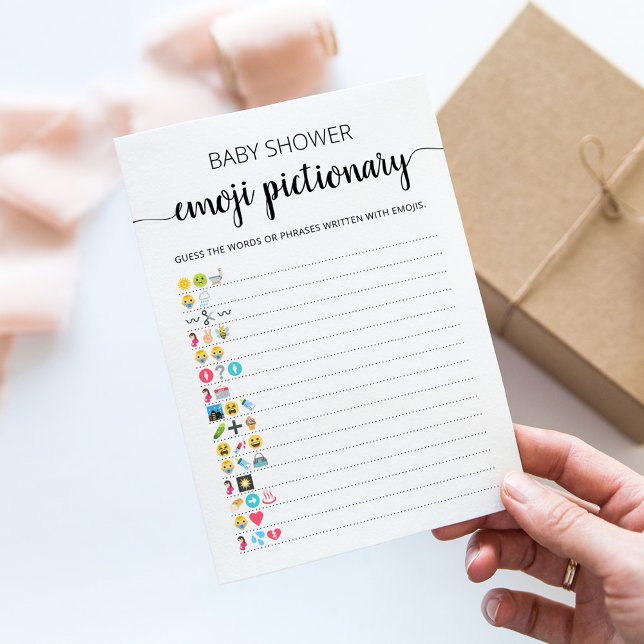 BABY SHOWER
emoji pictionary
GUESS THE WORDS OR PHRASES WRITTEN WITH EMOJIS.